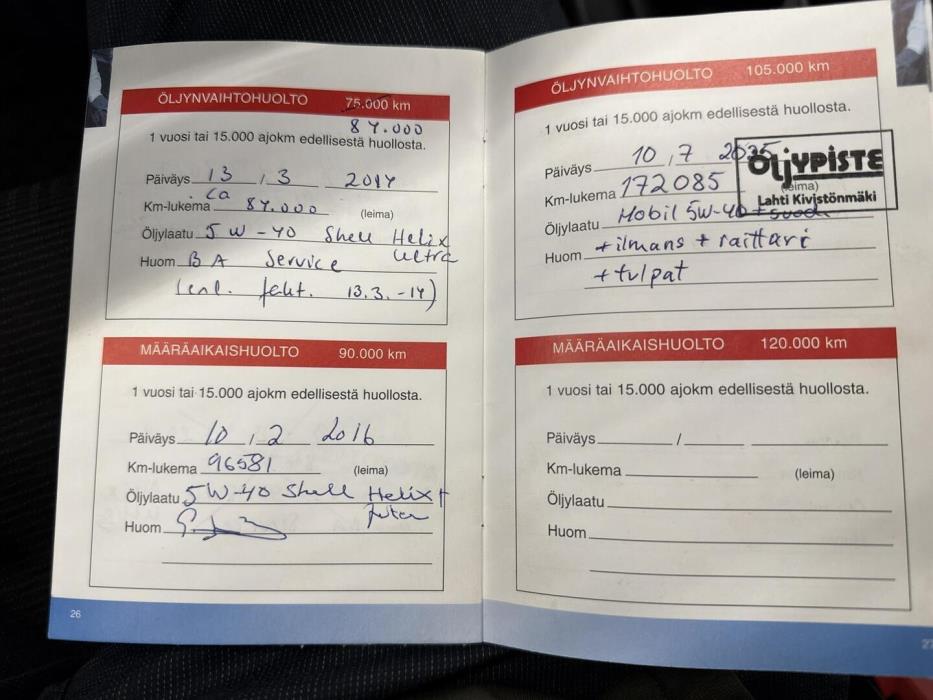 ÖLJYNVAIHTOHUOLTO 75.000 km
87.000
1 vuosi tai 15.000 ajokm edellisestä huollosta.
Päiväys 13 / 3 2014
ca
Km-lukema 87.000 (leima)
Öljylaatu 5W-40 Shell Helix
Ultra
Huom BA Service
13.3.-14)
MÄÄRÄAIKAISHUOLTO 90.000 km
1 vuosi tai 15.000 ajokm edellisestä huollosta.
Päiväys 10 / 2 2016
Km-lukema 96581 (leima)
Öljylaatu 5W-40 Shell Helix
Huom
26
ÖLJYNVAIHTOHUOLTO 105.000 km
1 vuosi tai 15.000 ajokm edellisestä huollosta.
Päiväys 10 / 7 2025
ÖLJYPISTE
Km-lukema 172085 (leima)
Lahti Kivistönmäki
Öljylaatu Mobil 5W-40 + suod.
Huom + ilmans + raittari
+ tulpat
MÄÄRÄAIKAISHUOLTO 120.000 km
1 vuosi tai 15.000 ajokm edellisestä huollosta.
Päiväys /
Km-lukema (leima)
Öljylaatu
Huom
27